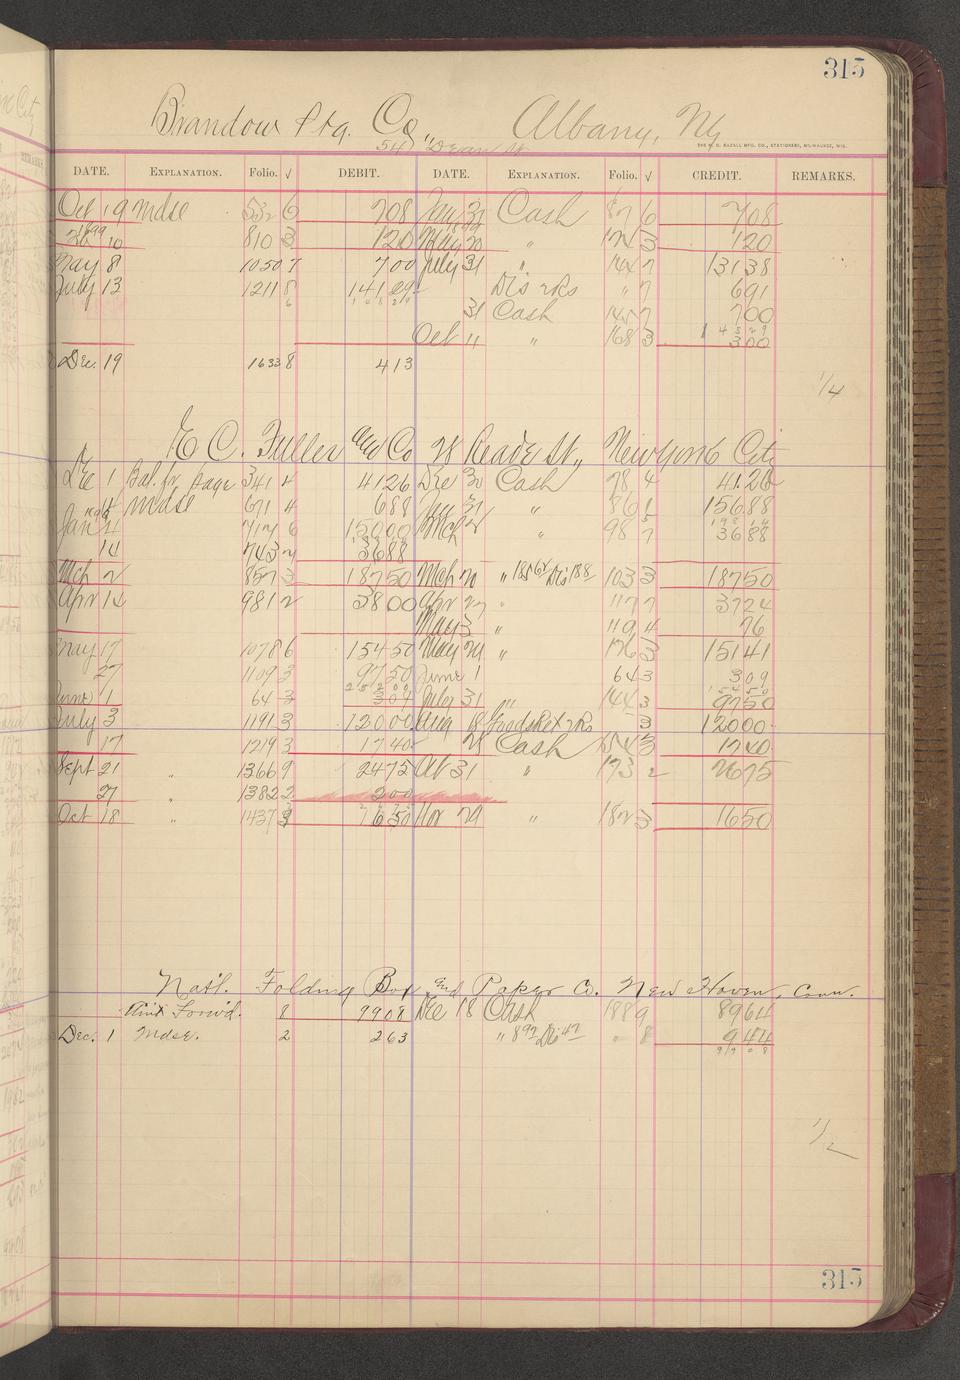 315
Brandow Ptg. Co., Albany, Ny
54 Dean st
DATE. EXPLANATION. Folio. √ DEBIT. DATE. EXPLANATION. Folio. √ CREDIT. REMARKS.
Oct 19 mdse 532 6 708 Jany 31 Cash 876 708
1899
10 810 3 120 May 20 " 3 120
May 8 1050 7 700 July 31 " 144 7 13138
July 13 1211 8 14129 Dis " 7 691
31 Cash 145 7 700
14529
Oct 11 " 168 3 300
Dec. 19 1633 8 413
1/4
E C. Fuller Co 28 Reade St., New York City
Dec 1 Bal. fr. page 341 4 4126 Dec 30 Cash 78 4 4126
mdse 671 4 688 31 " 86 1 15688
Jan 4 717 6 15000 Mch 2 " 98 7 3688
14 743 2 3688
Mch 2 857 3 18750 Mch 20 " 18562 Dis 188 103 3 18750
Apr 14 981 2 3800 Apr 27 " 117 7 3724
May 3 " 119 4 76
May 17 1078 6 15450 May 29 " 126 3 15141
27 1109 3 9750 June 1 64 3 309
25200 15450
June 1 64 3 309 July 31 " 144 3 9750
July 3 1191 3 12000 Aug 18 3 12000
17 1219 3 1740 28 Cash 154 3 1740
Sept 21 " 1366 9 2475 Oct 31 " 173 2 2675
27 " 1382 2 200
Oct 18 " 1437 3 1650 Nov 29 " 182 3 1650
Natl. Folding Box and Paper Co. New Haven, Conn.
Amt Forw'd. 8 9908 Dec 18 Cash 188 9 8964
Dec. 1 Mdse. 2 263 " 897 Dis 47 " 8 944
9908
1/2
315